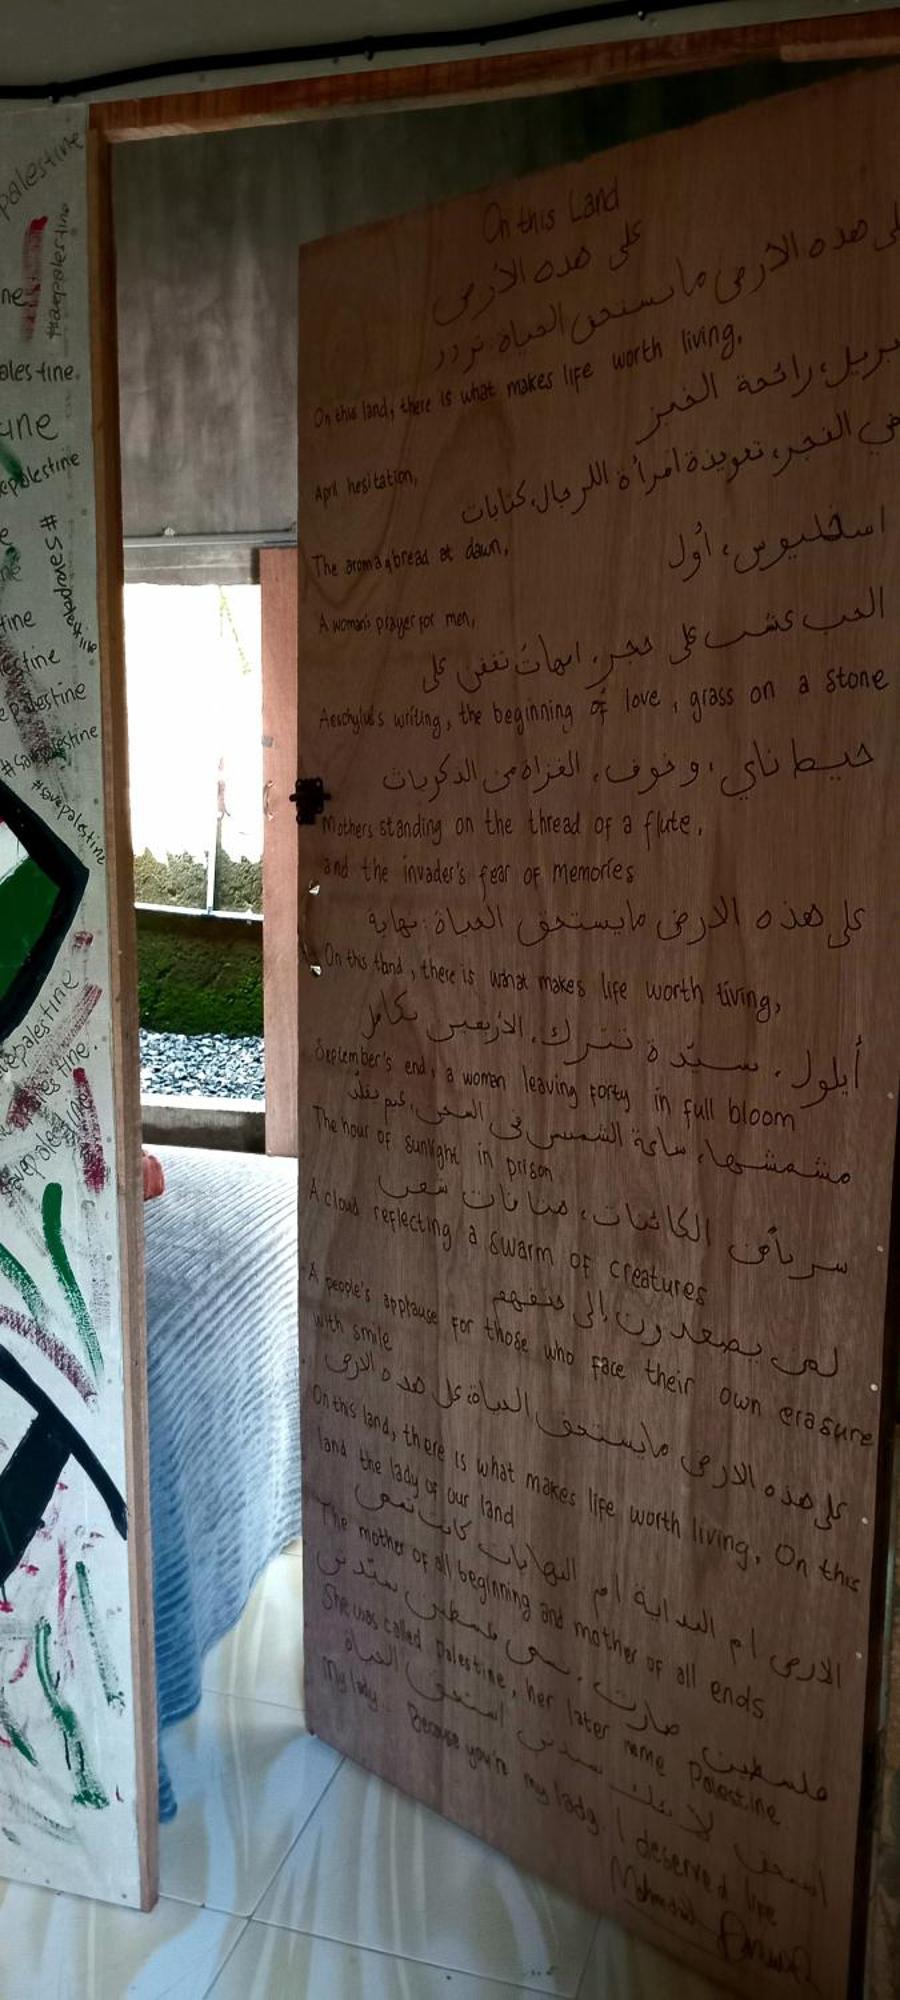 palestine
#savepalestine
ne
ales tine.
une
epalestine
#savepalestine
tine
estine
e palestine
#savepalestine
#savepalestine
epalestine
On this Land
على هذه الأرض
على هذه الأرض ما يستحق الحياة: تردد
On this land, there is what makes life worth living.
بريل، رائحة الخبز
April hesitation,
في الفجر، تعويذة امرأة للرجال، كتابات
The aroma of bread at dawn,
اسخليوس، أول
A woman's prayer for men,
الحب عشب على حجر، امهات تقفن على
Aeschylus's writing, the beginning of love, grass on a stone
خيط ناي، وخوف، الغزاة من الذكريات
Mothers standing on the thread of a flute,
and the invader's fear of memories
على هذه الارض مايستحق الحياة: نهاية
On this land, there is what makes life worth living,
أيلول، سيّدة تترك، الأربعين بكامل
September's end, a woman leaving forty in full bloom
مشمشها، ساعة الشمس في السجن، غيم يقلد
The hour of sunlight in prison
سربا من الكائنات، هتافات شعب
A cloud reflecting a swarm of creatures
لمن يصعدون إلى حتفهم
A people's applause for those who face their own erasure
with smile
على هذه الارض مايستحق الحياة، على هذه الارض
On this land, there is what makes life worth living, On this
land the lady of our land
الارض ام البداية ام النهايات كانت تسمى
The mother of all beginning and mother of all ends
فلسطين صارت تسمى فلسطين سيّدتي
She was called palestine, her later name Palestine
استحق لانك سيدتي استحق الحياة
My lady.. Because you're my lady. I deserved life
Mahmoud Darwish